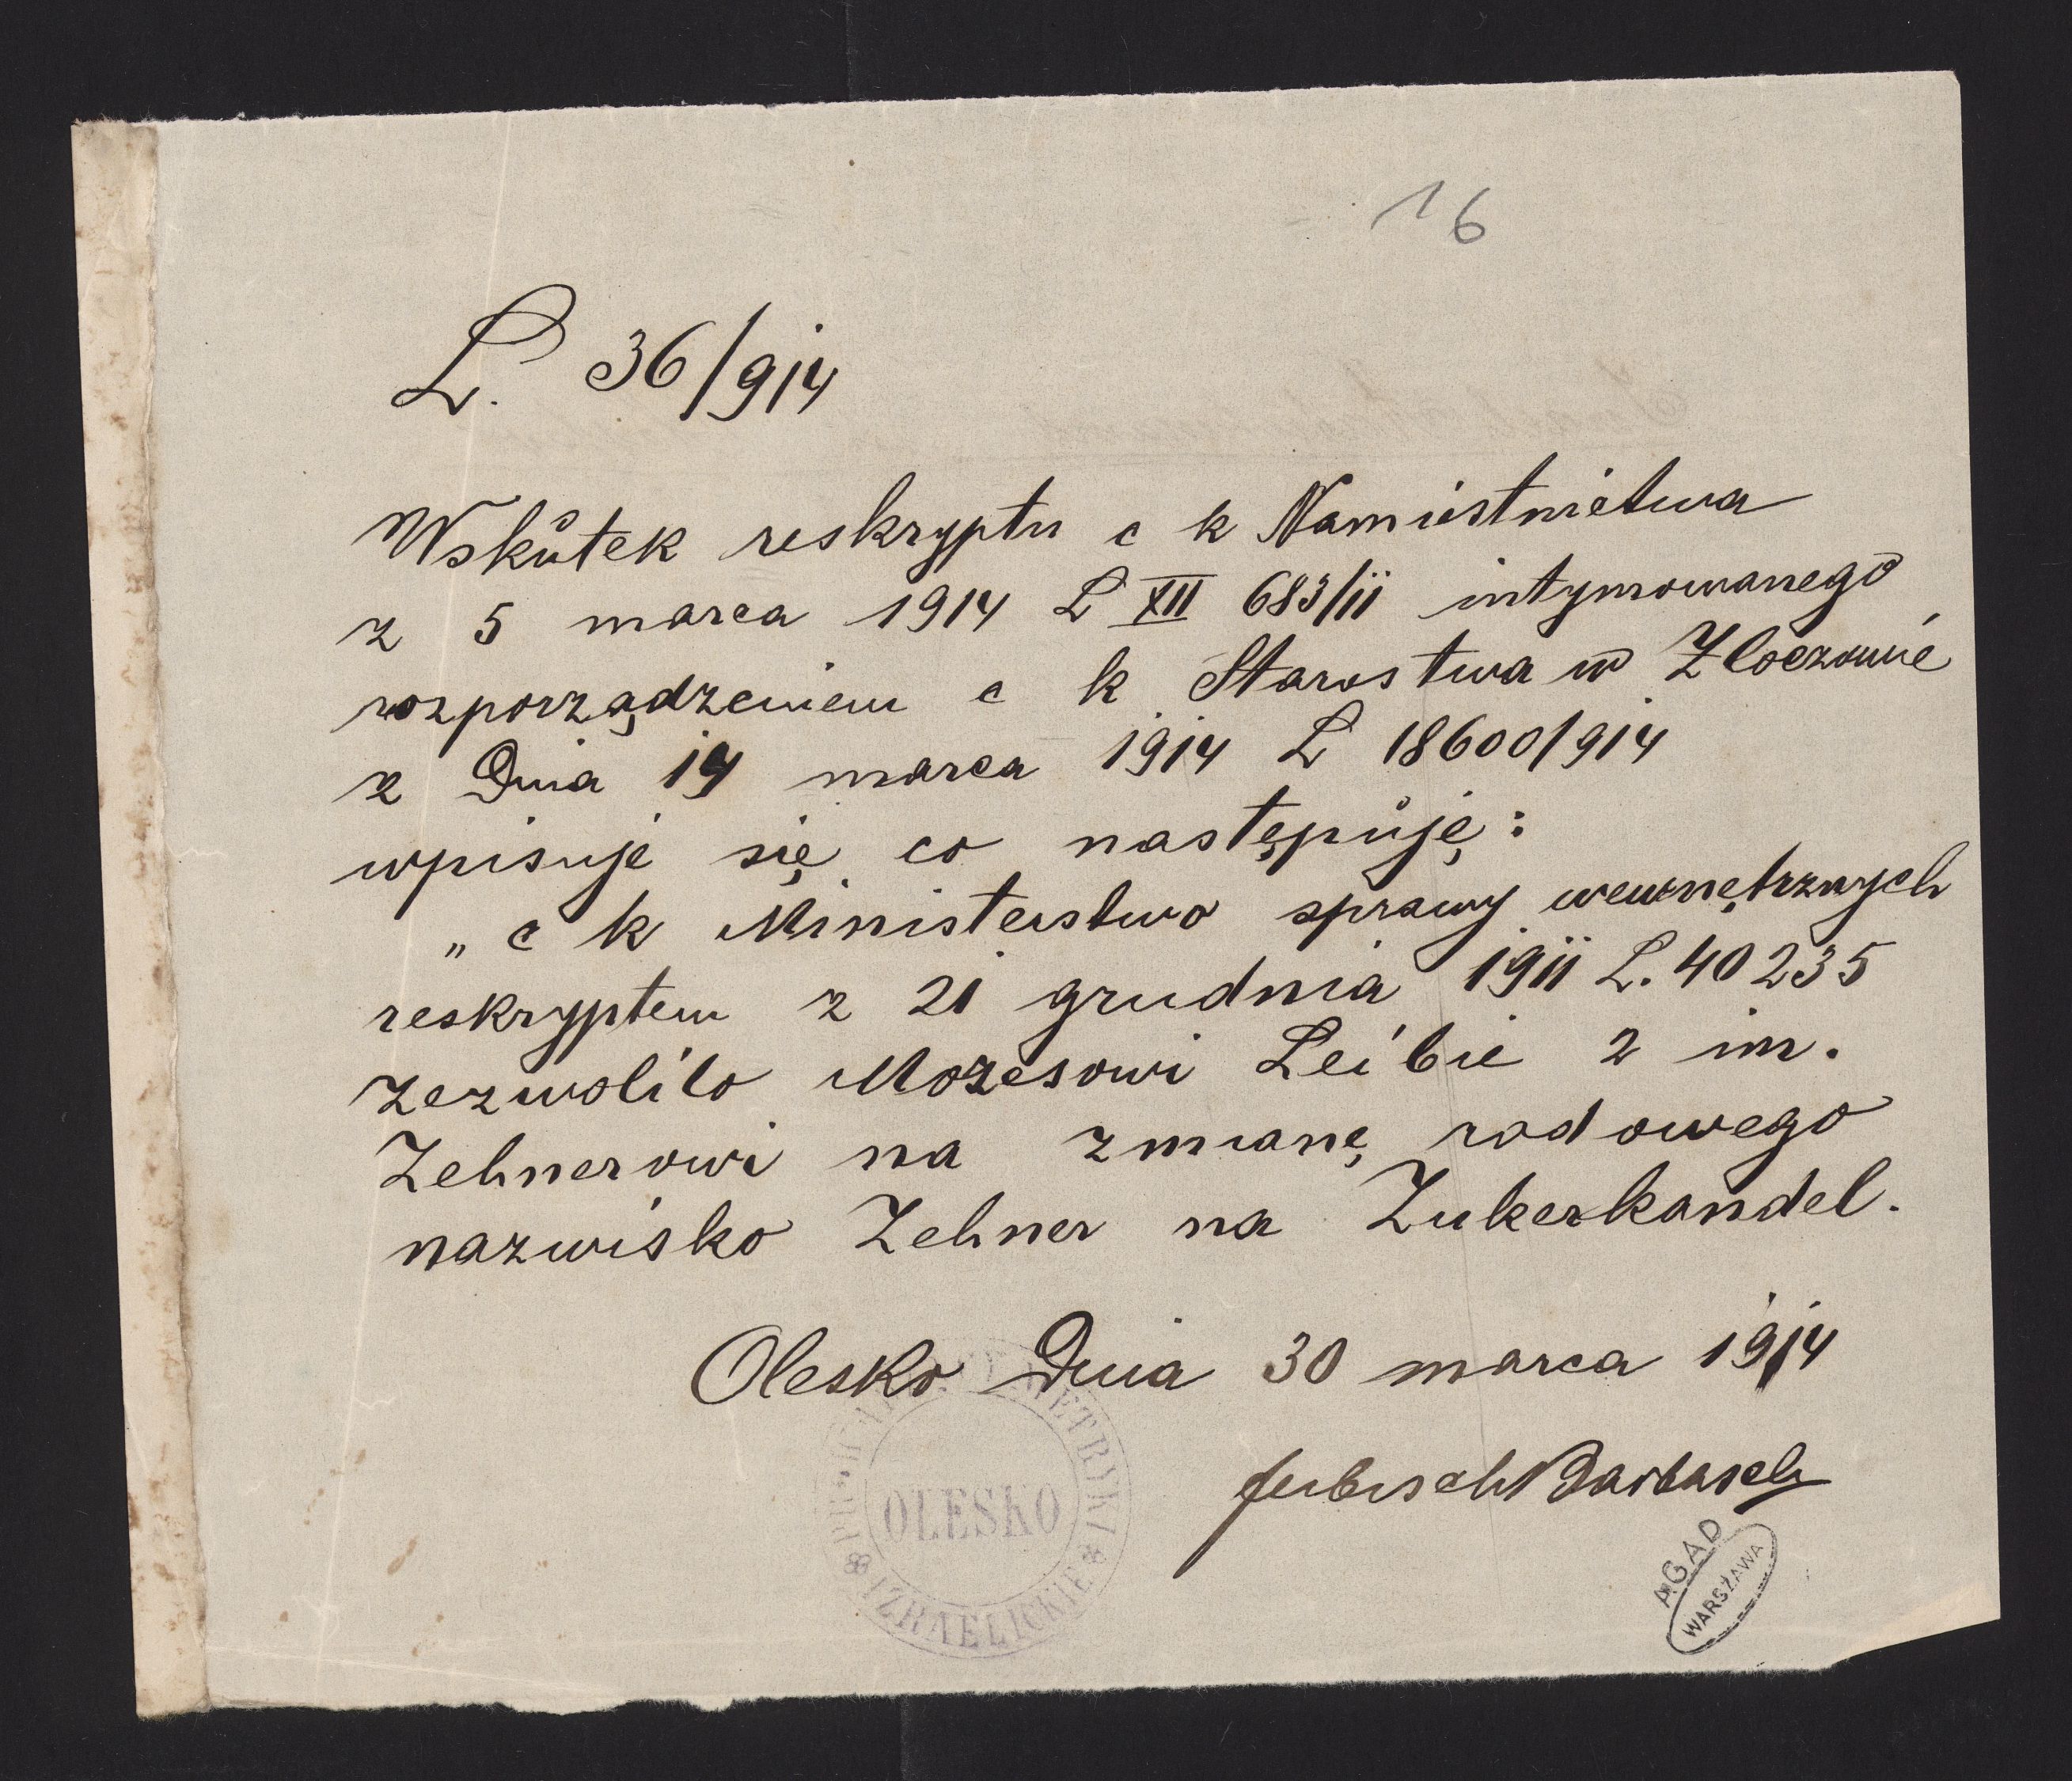 16
L. 36/914
Wskutek reskryptu c k Namiestnictwa
z 5 marca 1914 L XII 683/11 intymowanego
rozporządzeniem c k Starostwa w Złoczowie
z Dnia 14 marca 1914 L 18600/914
wpisuje się co następuję:
„ c k Ministerstwo sprawy wewnętrznych
reskryptem z 21 grudnia 1911 L. 40235
zezwoliło Mozesowi Leibie 2 im.
Zehnerowi na zmianę rodowego
nazwisko Zehner na Zukerkandel.
Olesko Dnia 30 marca 1914
OLESKO
METRYKI
IZRAELICKIE
AGAD
WARSZAWA